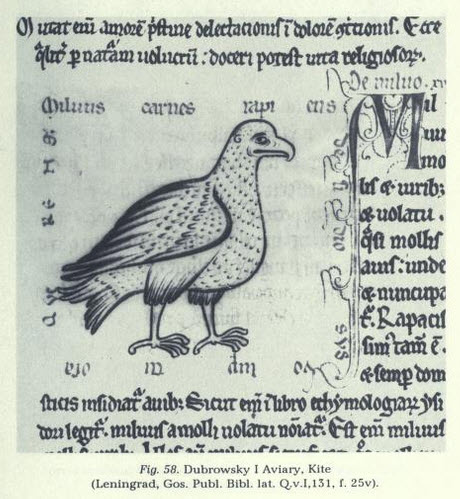 Mutat eni amorē pstine delectacionis ī dolorē gtcionis. Ecce
qlit p natam uolucrū : doceri potest uita religiosoꝝ.
De miluo. xv
Miluus carnes rapi ens
Mil
uus
mo
lis & uirib;
& uolatu.
qsi mollis
auis : unde
& nuncupa
t̄. Rapacis
sim tam̄ ē.
& semp dom
sticis insidiat auib;. Sicut eni ī libro ethymologiaꝝ ysi
dori legit̄. miluus a molli uolatu noīat̄. Est eni miluus
Fig. 58. Dubrowsky I Aviary, Kite
(Leningrad, Gos. Publ. Bibl. lat. Q.v.I,131, f. 25v).